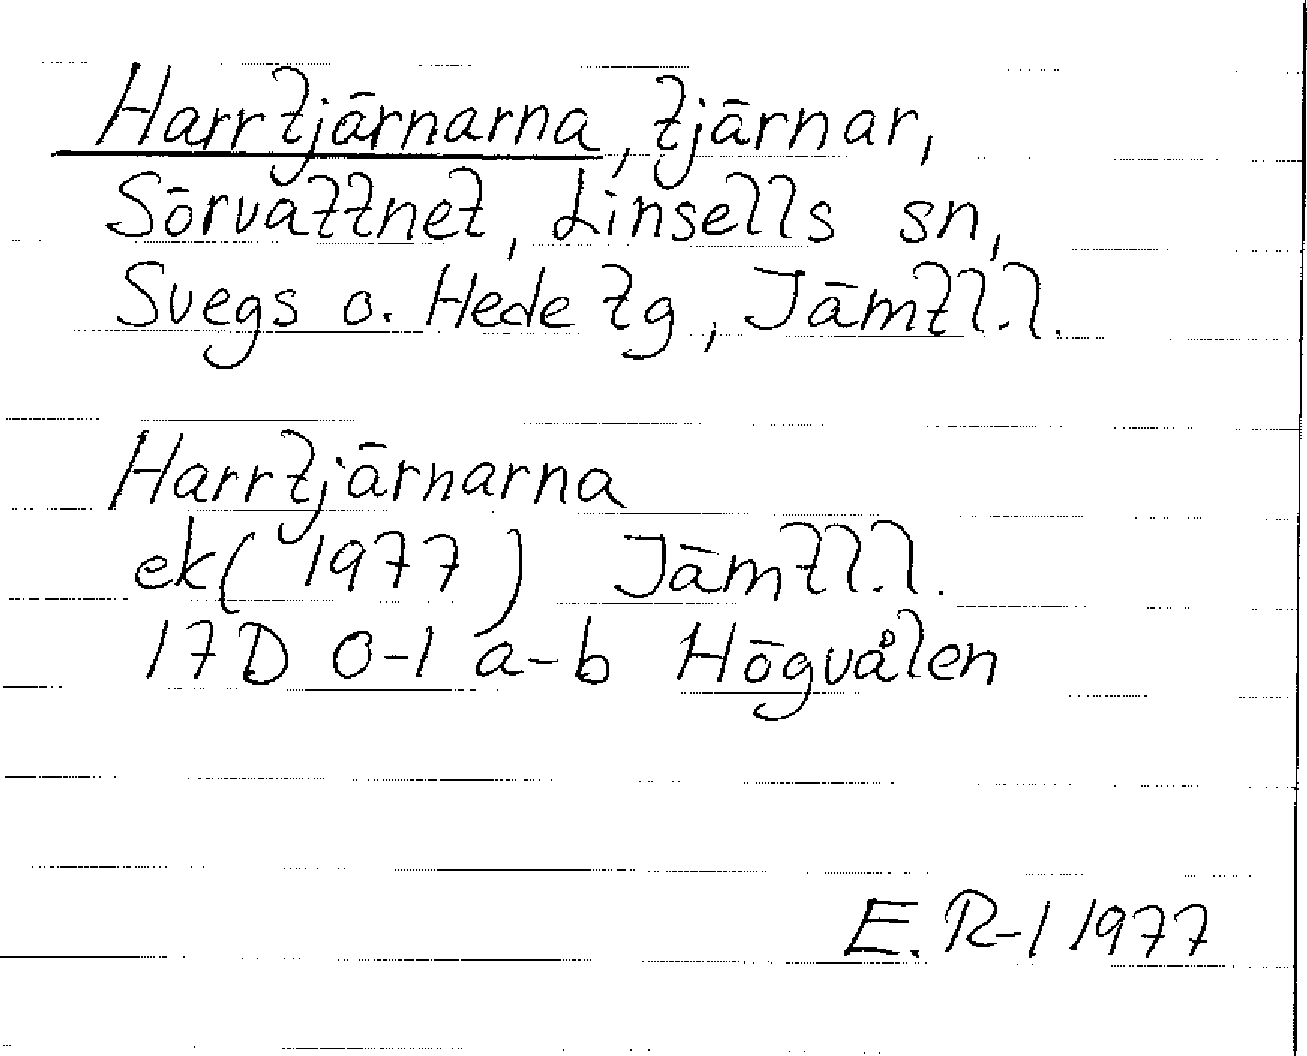 Harrtjärnarna, tjärnar,
Sörvattnet, Linsells sn,
Svegs o. Hede tg, Jämtl.l.
Harrtjärnarna
ek(1977) Jämtl.l.
17D 0-1 a-b Högvålen
E. R-l 1977